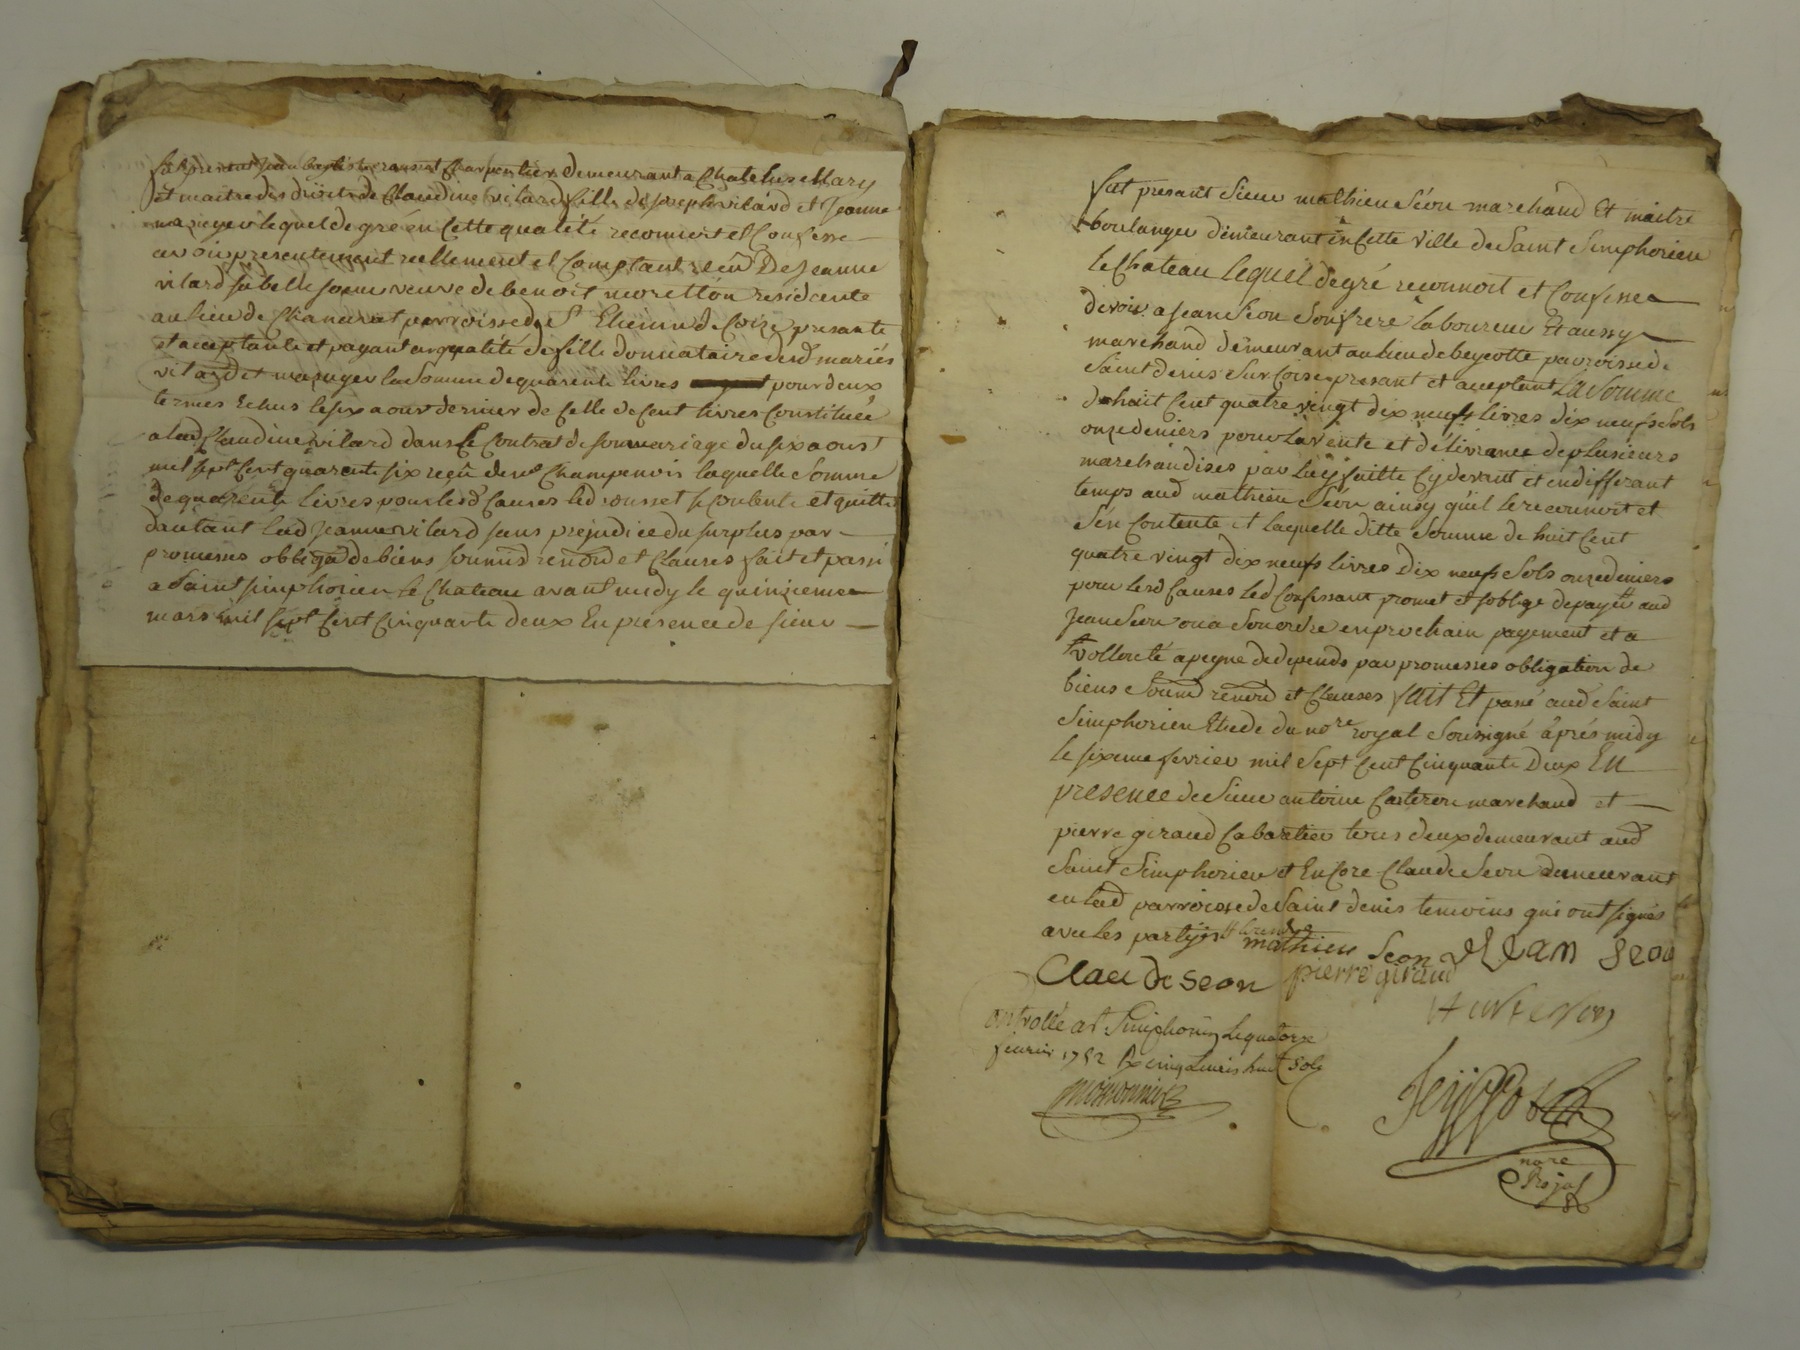 fut present Jean baptiste rousset Charpentier demeurant a Chatelus Mary
et maitre des droits de Claudine vilard fille de Joseph vilard et Jeanne
mazuyer lequel de gré en Cette qualité reconnoit et Confesse
avoir presentement reellement et Comptant reçû De Jeanne
vilard sa belle soeur veuve de benoit neoretton residente
au lieu de parroisse de St Etienne de Coize presante
et acceptante et payant en qualité de fille donnataire desd mariés
vilard et mazuyer la Somme de quarente livres pour deux
termes Echus le six aoust dernier de Celle de Cent livres Constituée
a lad Claudine vilard dans le Contrat de son mariage du six aoust
mil sept Cent quarente six reçû de me Champenois laquelle Somme
de quarente livres pour lesd Causes led rousset se Contente et quitte
dautant lad Jeanne vilard sans prejudice du surplus par
promesses obligaõ de biens soumiõ renonõ et Clauses fait et passé
a Saint simphorien le Chateau avant midy le quinzieme
mars mil sept Cent Cinquante deux En presence de sieur
fut presant Sieur mathieu Séon marchand Et maitre
boulanger demeurant en Cette ville de Saint Simphorien
le Chateau lequel de gré reconnoit et Confesse
devoir a Jean Séon Son frere laboureur Et aussy
marchand demeurant au lieu de beycotte parroisse de
Saint denis Sur Coise presant et aceptant La Somme
de huit Cent quatre vingt dix neufs livres dix neufs Sols
onze deniers pour la vente et délivrance de plusieurs
marchandises par luy faitte Cy devant et en differant
temps aud mathieu Séon ainsy qu'il le reconnoit et
S'en Contente et laquelle ditte Somme de huit Cent
quatre vingt dix neufs livres Dix neufs Sols onze deniers
pour lesd Causes led Confessant promet et s'oblige de payer aud
Jean Seon ou a Son ordre en prochain payement et a
volloncté a peyne de depends par promesses obligation de
biens Soumõ renonõ et Clauses fait Et passé aud Saint
Simphorien Etude du nore royal Soussigné âprés midy
le sixeme fevrier mil Sept Cent Cinquante Deux En
presence de Sieur antoine Carteron marchand et
pierre giraud Cabartier tous deux demeurant aud
Saint Simphorien et Encore Claude Seon demeurant
en lad parroisse de Saint denis temoins qui ont signés
avec les partyes
mathieu Seon Jean Seon
Claude Seon pierre giraud
Carteron
Controllé a St Simphorien le quatorze
fevrier 1752 Rx cinq livres huit Sols
moissonnier
nore
Royal